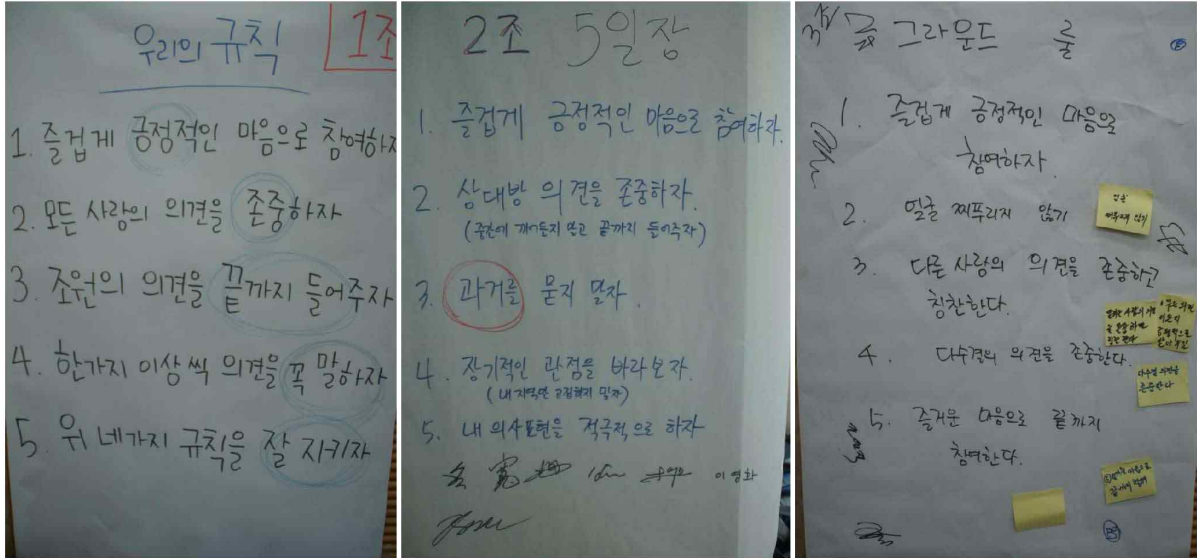 우리의 규칙
1조
1. 즐겁게 긍정적인 마음으로 참여하자
2. 모든 사람의 의견을 존중하자
3. 조원의 의견을 끝까지 들어주자
4. 한가지 이상씩 의견을 꼭 말하자
5. 위 네가지 규칙을 잘 지키자
2조 5일장
1. 즐겁게 긍정적인 마음으로 참여하자.
2. 상대방 의견을 존중하자.
(중간에 끼어든지 말고 끝까지 들어주자)
3. 과거를 묻지 말자.
4. 장기적인 관점을 바라보자.
(내 지역만 고집하지 말자)
5. 내 의사표현을 적극적으로 하자
이영화
3조 그라운드 룰
1. 즐겁게 긍정적인 마음으로
참여하자.
2. 얼굴 찌푸리지 않기
얼굴
찌푸리지 않기
3. 다른 사람의 의견을 존중하고
칭찬한다.
4. 다수결의 의견을 존중한다.
다수결 의견을
존중한다
5. 즐거운 마음으로 끝까지
참여한다.